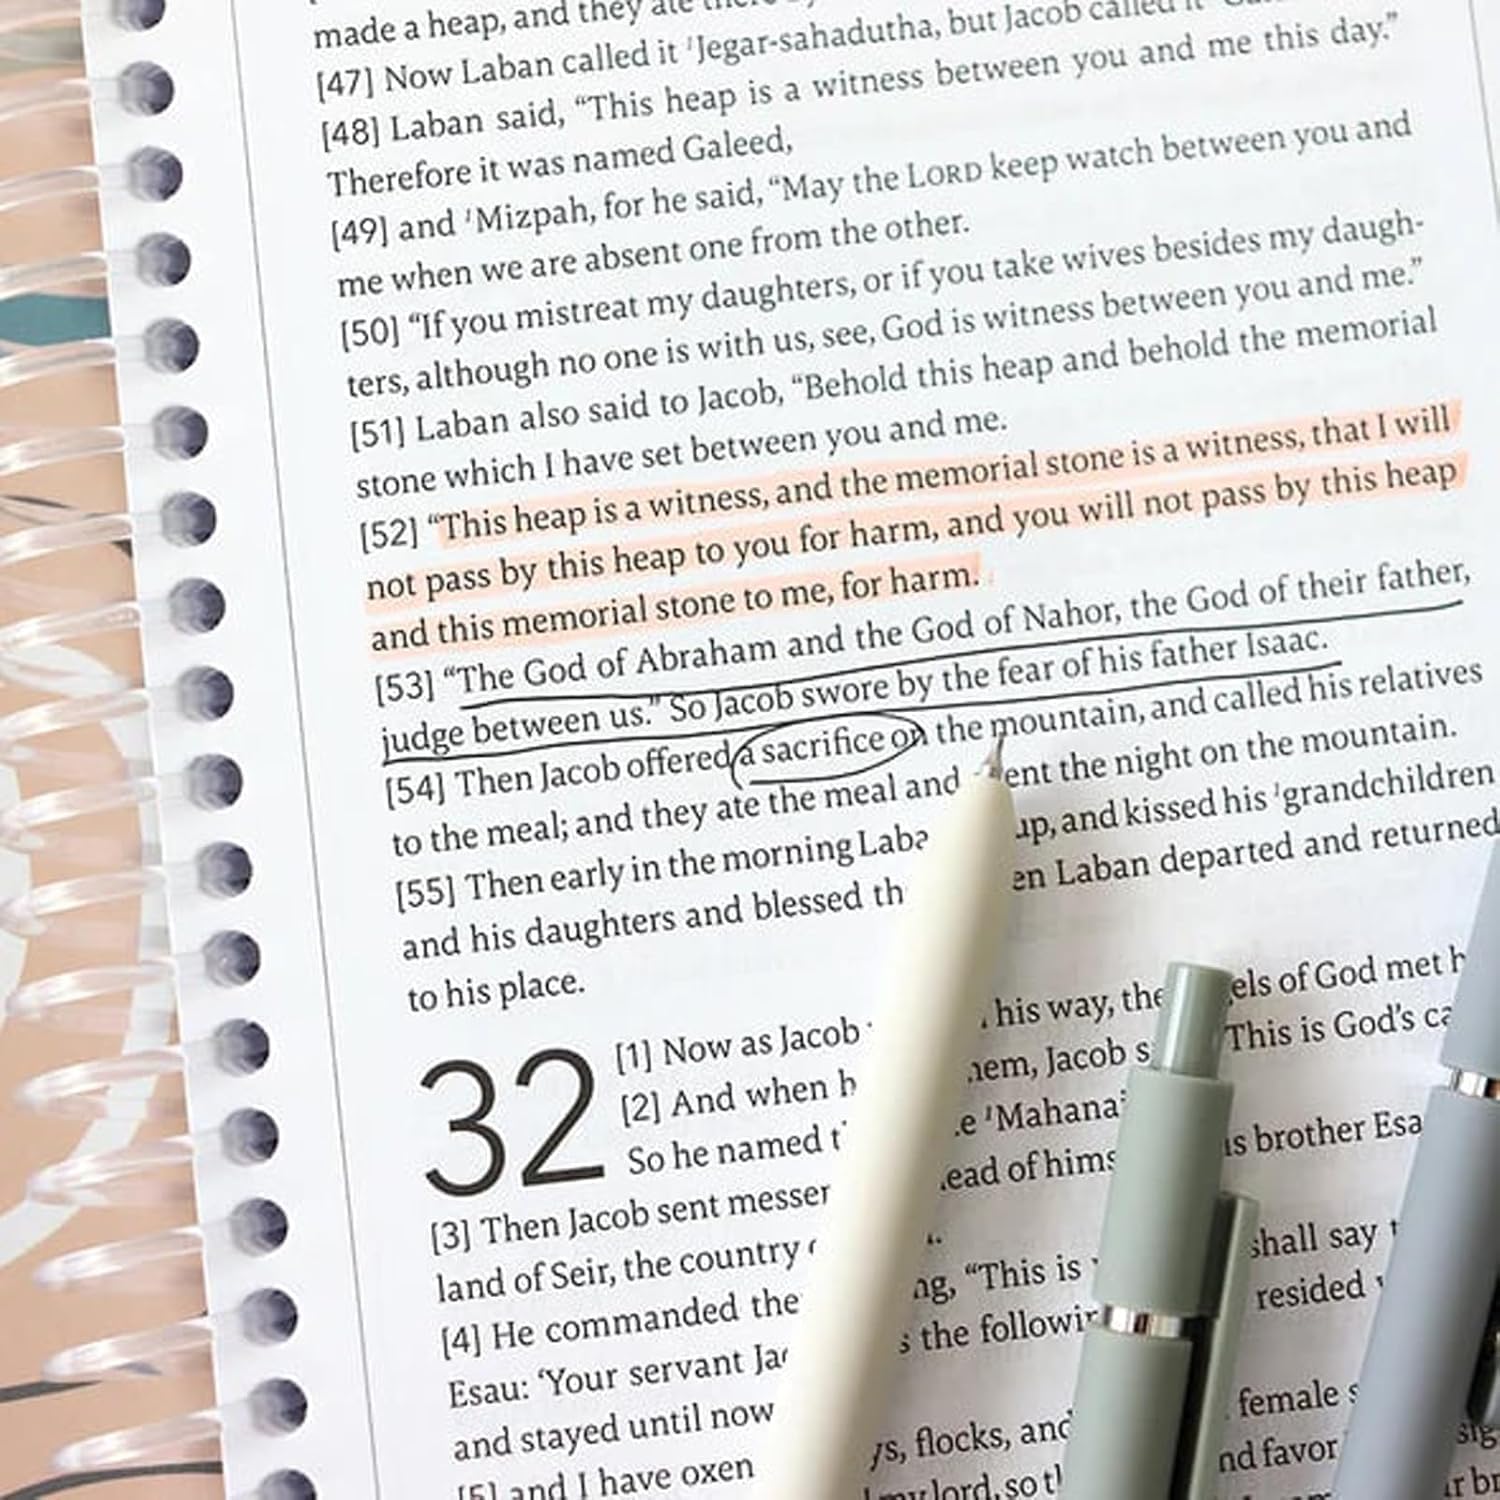 made a heap, and they ate
[47] Now Laban called it ¹Jegar-sahadutha, but Jacob called it
[48] Laban said, “This heap is a witness between you and me this day.”
Therefore it was named Galeed,
[49] and ¹Mizpah, for he said, “May the LORD keep watch between you and
me when we are absent one from the other.
[50] “If you mistreat my daughters, or if you take wives besides my daugh-
ters, although no one is with us, see, God is witness between you and me.”
[51] Laban also said to Jacob, “Behold this heap and behold the memorial
stone which I have set between you and me.
[52] “This heap is a witness, and the memorial stone is a witness, that I will
not pass by this heap to you for harm, and you will not pass by this heap
and this memorial stone to me, for harm.
[53] “The God of Abraham and the God of Nahor, the God of their father,
judge between us.” So Jacob swore by the fear of his father Isaac.
[54] Then Jacob offered a sacrifice on the mountain, and called his relatives
to the meal; and they ate the meal and ent the night on the mountain.
[55] Then early in the morning Laba up, and kissed his ¹grandchildren
and his daughters and blessed th en Laban departed and returned
to his place.
32
[1] Now as Jacob his way, the els of God met h
[2] And when h hem, Jacob s This is God’s ca
So he named t e ¹Mahana
[3] Then Jacob sent messer ead of hims is brother Esa
land of Seir, the country
[4] He commanded the ng, “This is shall say t
Esau: ‘Your servant Jac s the followin resided
and stayed until now
[5] and I have oxen ys, flocks, and female s
my lord, so th nd favor